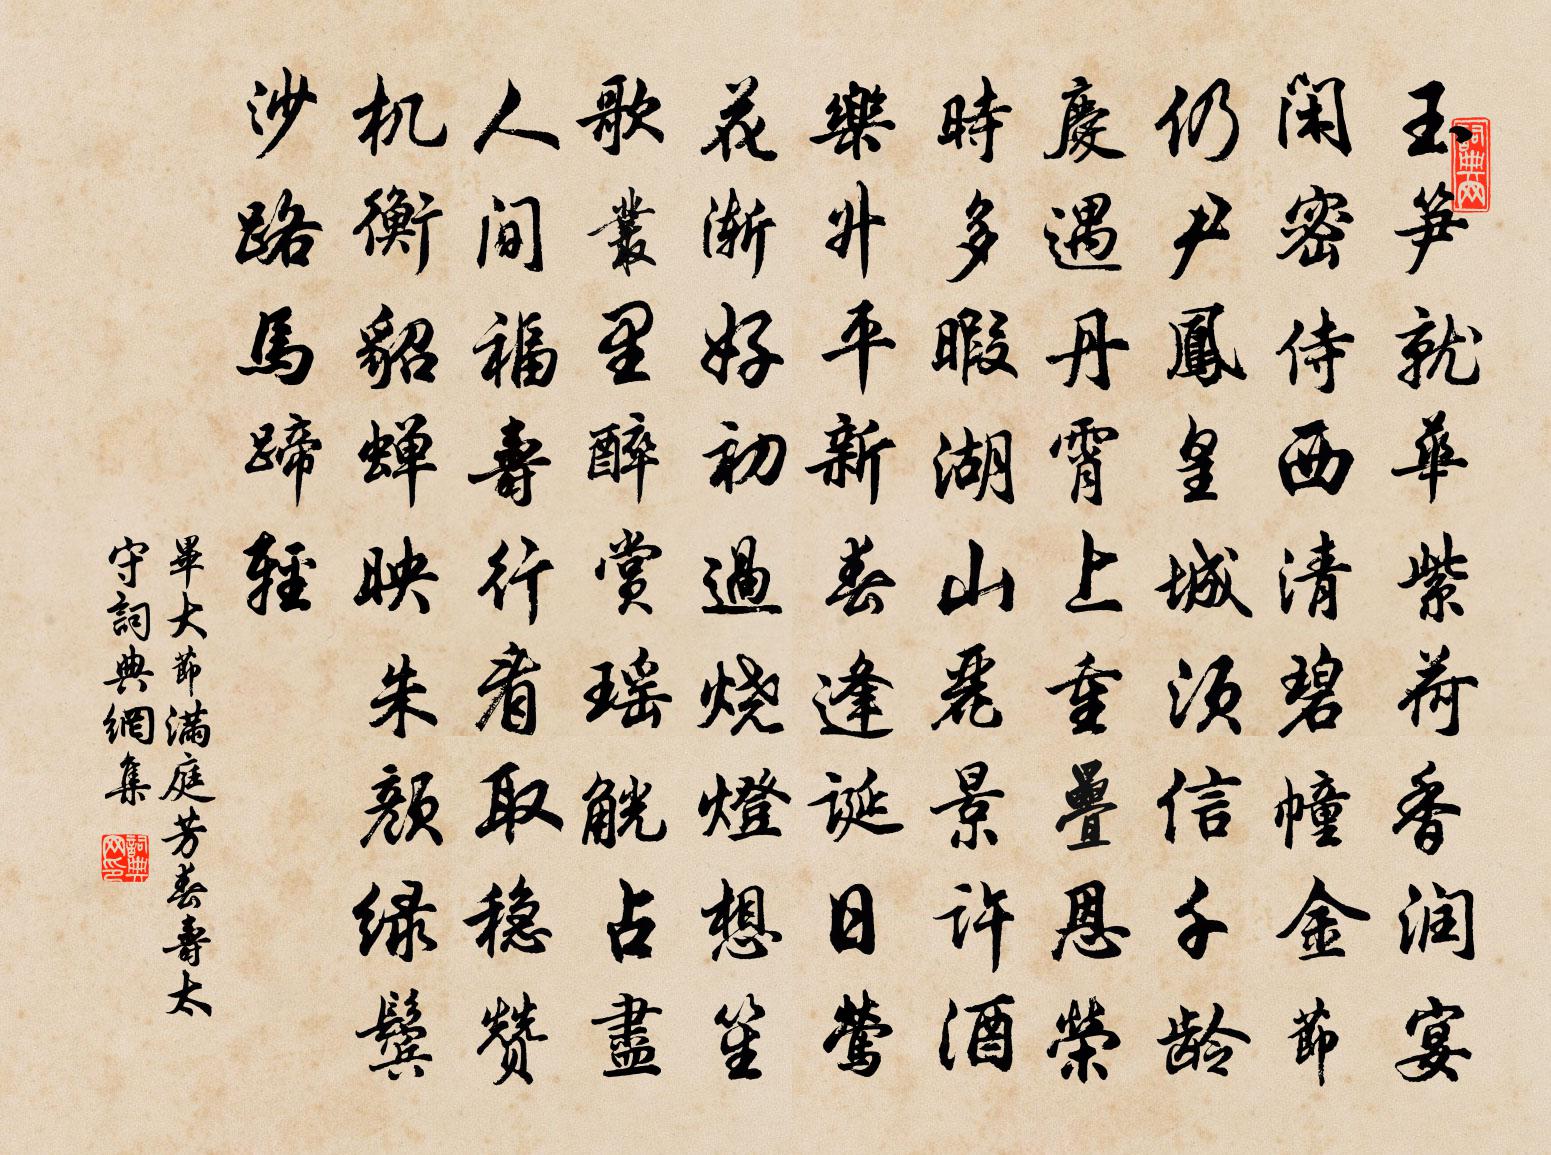 玉笋就華紫荷香润宴
閑密侍西清碧幢金節
仍尹鳳皇城須信千齡
慶遇丹霄上重疊恩榮
時多暇湖山麗景許酒
樂升平新春逢誕日鶯
花漸好初過燒燈想笙
歌叢里醉賞瑶觥占盡
人間福壽行看取穩贊
机衡貂蝉映朱顏緑鬢
沙路馬蹄輕
畢大節滿庭芳春壽太
守詞典網集
詞典网
詞典网印